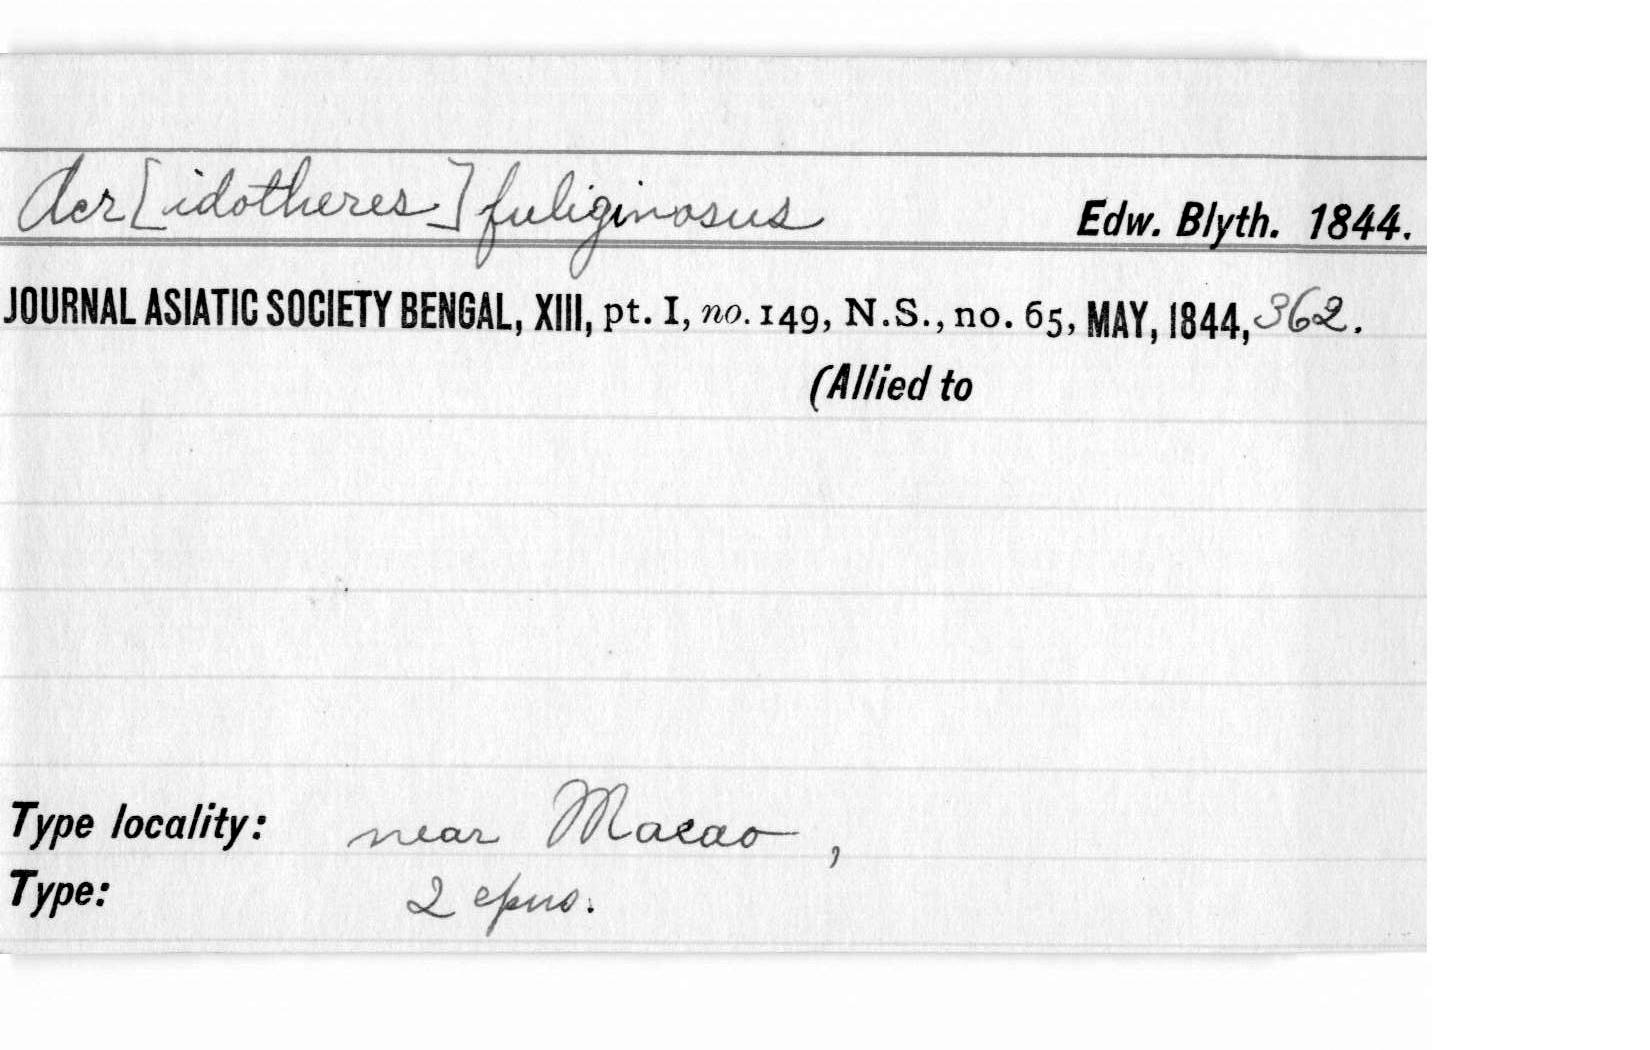 Acr[idotheres] fuliginosus Edw. Blyth. 1844.
JOURNAL ASIATIC SOCIETY BENGAL, XIII, pt. I, no. 149, N.S., no. 65, MAY, 1844, 362.
(Allied to
Type locality: near Macao,
Type: 2 cpns.